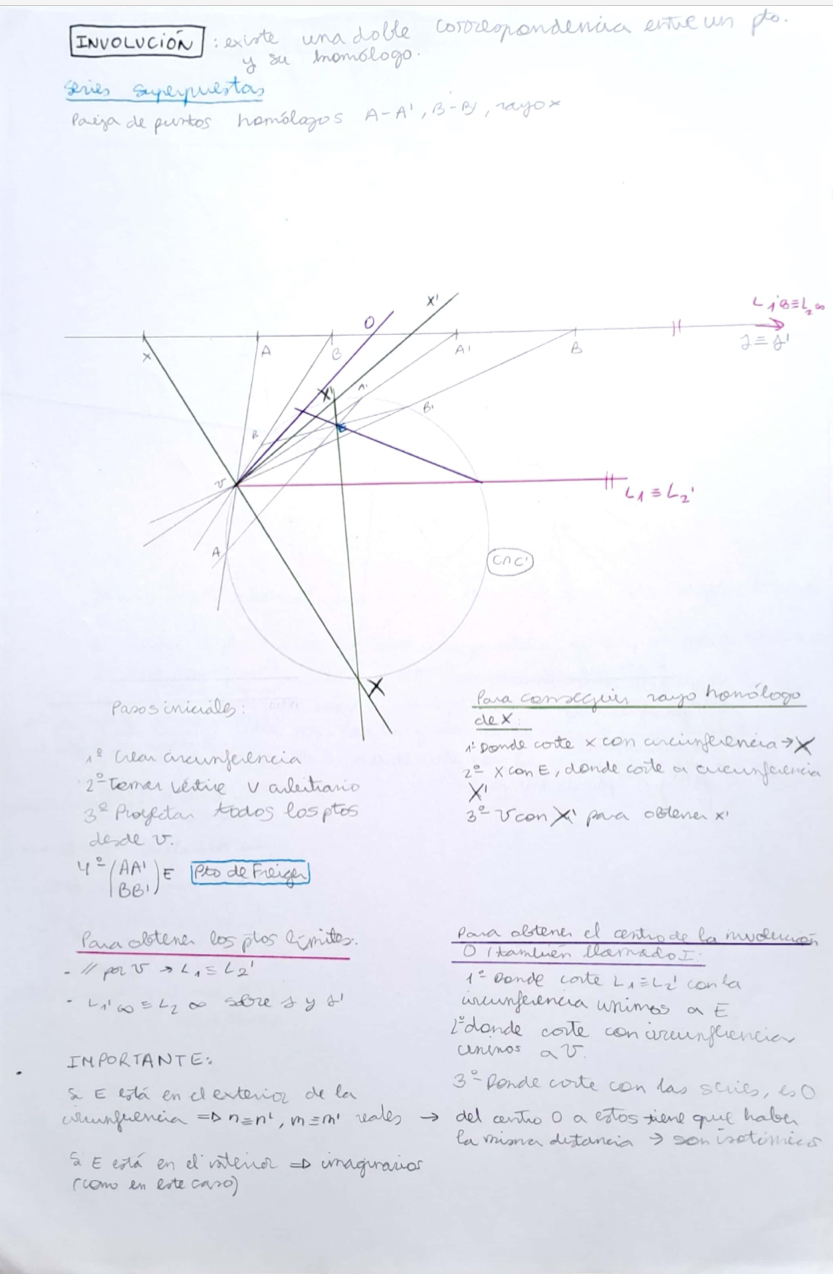 INVOLUCIÓN : existe una doble correspondencia entre un pto.
y su homólogo.
series superpuestas
Pareja de puntos homólogos A-A', B-B', rayo x
x'
O
L1'∞≡L2∞
x
A
B'
A'
B
s≡s'
X'
A'
B'
B
E
V
L1≡L2'
A
C∩C'
X
Pasos iniciales:
1º Crear circunferencia
2º Tomar vértice V arbitrario
3º Proyectar todos los ptos
desde v.
4º (AA'
BB') E Pto de Freiger
Para conseguir rayo homólogo
de x:
1º Donde corte x con circunferencia → X
2º X con E, donde corte a circunferencia
X'
3º V con X' para obtener x'
Para obtener los ptos límites.
- // por v → L1≡L2'
- L1'∞≡L2∞ sobre s y s'
Para obtener el centro de la involución
O (también llamado I:
1º Donde corte L1≡L2' con la
circunferencia unimos a E
2º donde corte con circunferencia
unimos a v.
3º Donde corte con las series, es O
IMPORTANTE:
Si E está en el exterior de la
circunferencia ⇒ n≡n', m≡m' reales → del centro O a estos tiene que haber
la misma distancia → son isotómicos
Si E está en el interior ⇒ imaginarios
(como en este caso)